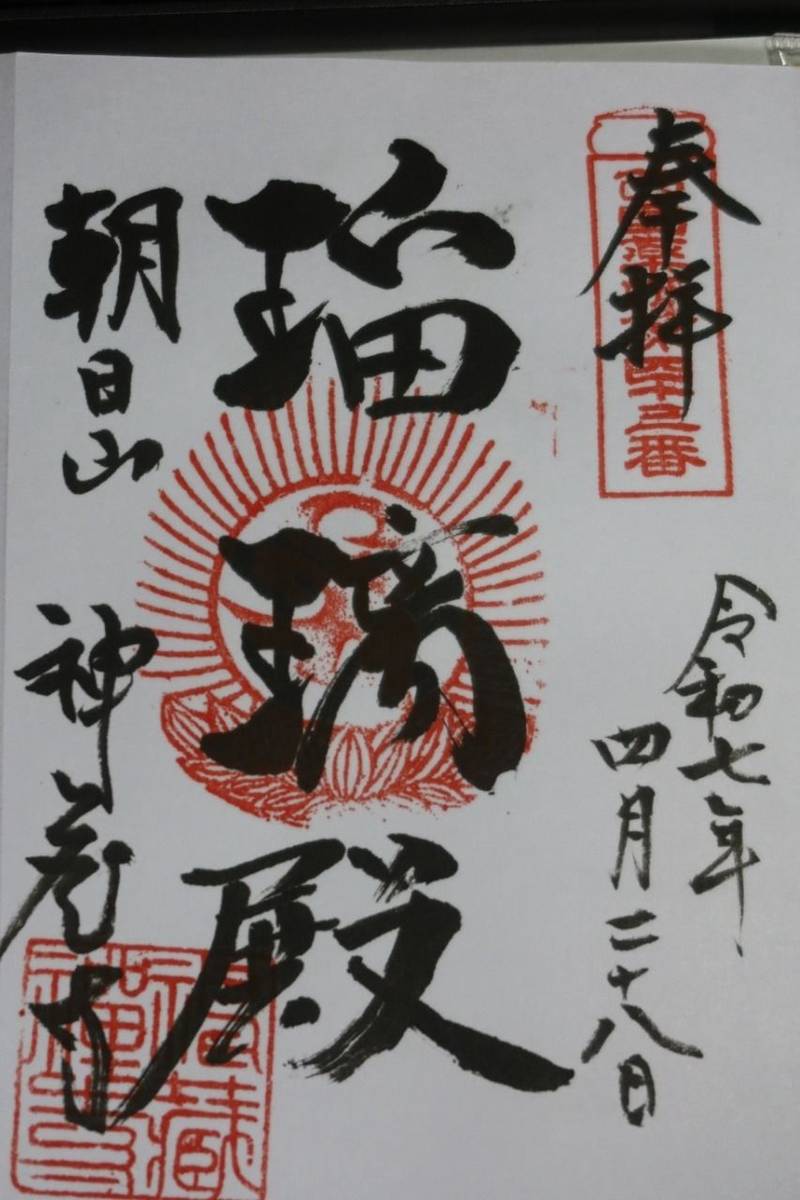 奉拝
四十三番
令和七年
四月二十八日
瑠璃殿
朝日山
神蔵寺